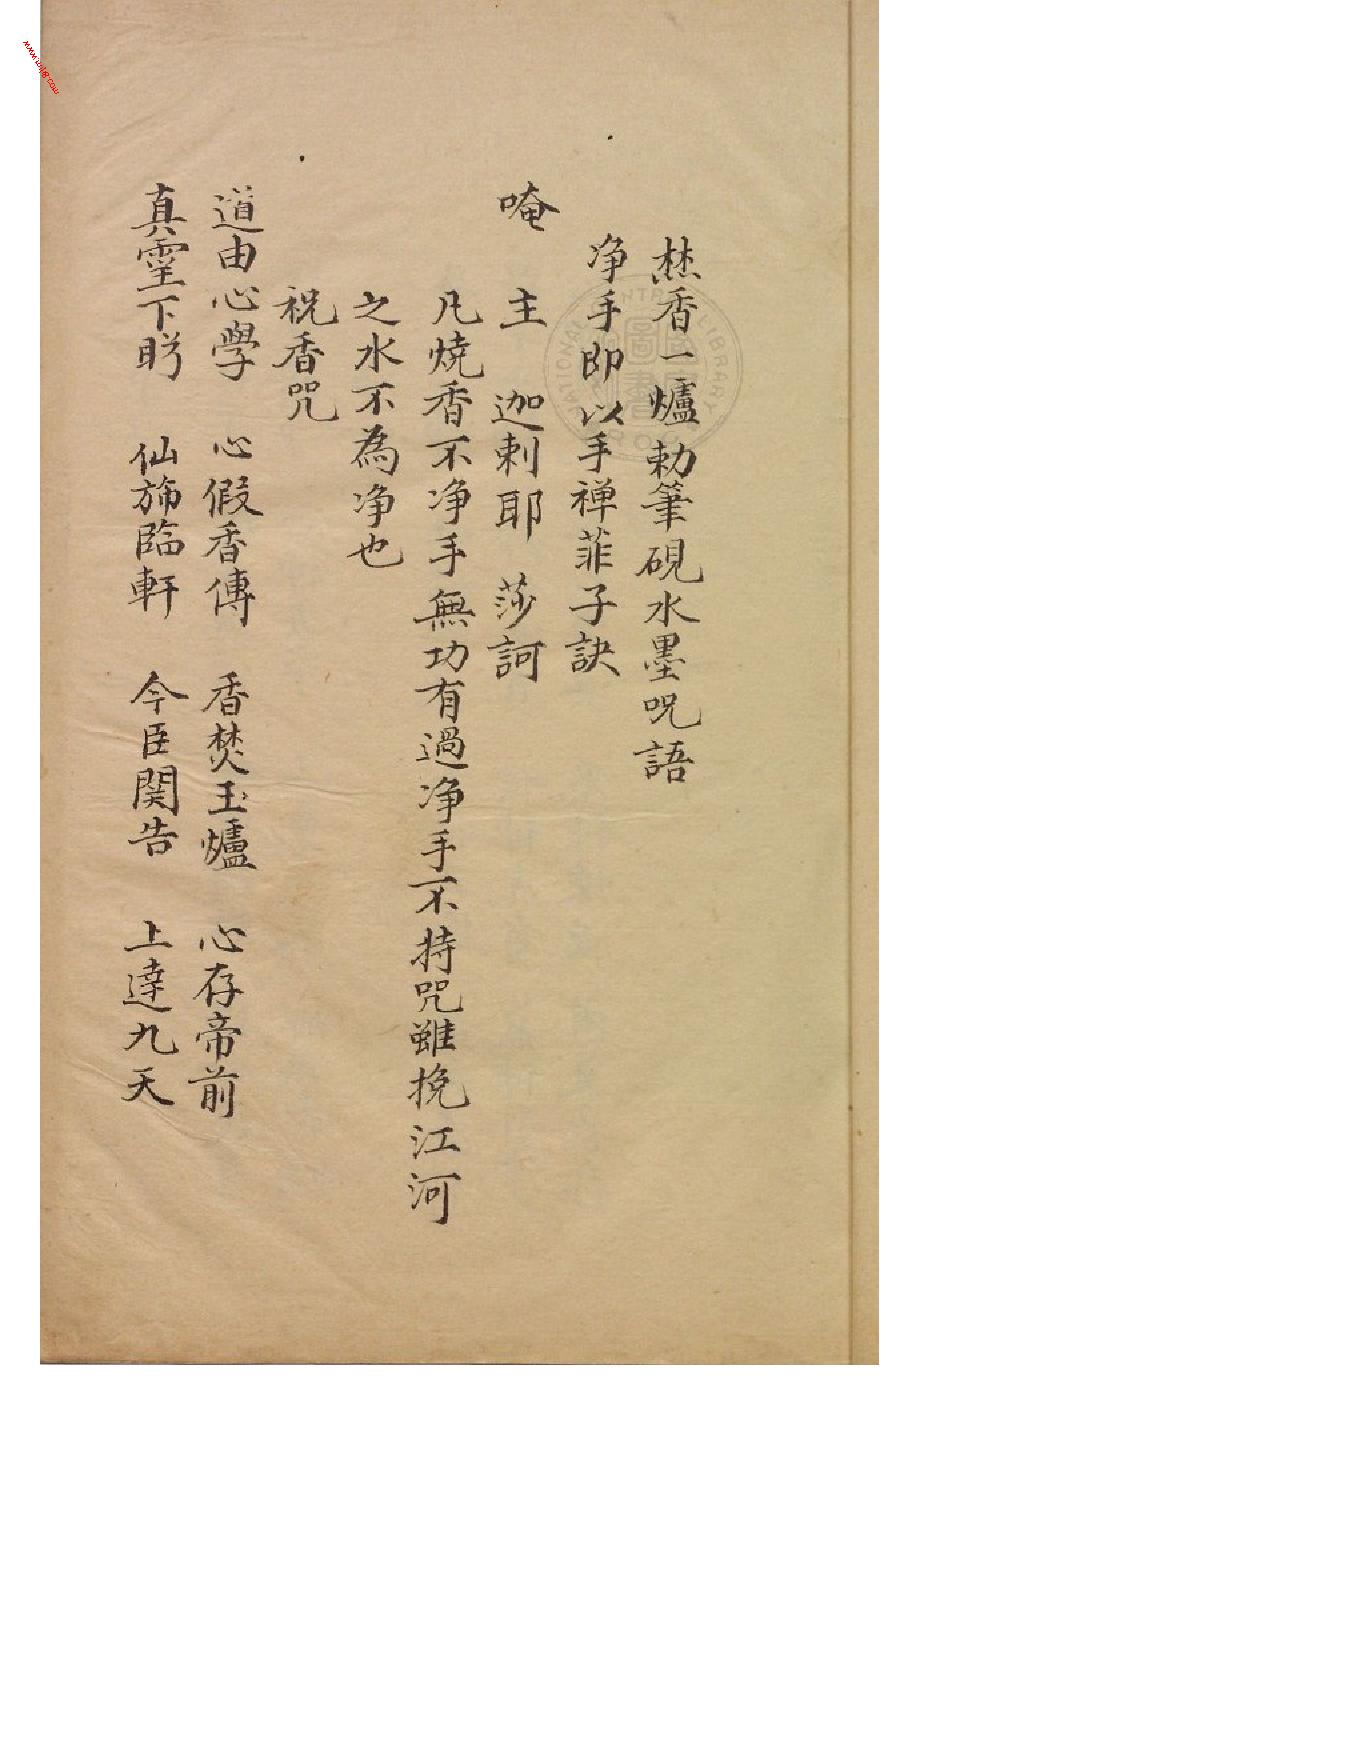 焚香一爐勅筆硯水墨呪語
净手即以手禅菲子訣
唵 主 迦剌耶 莎訶
凡燒香不净手無功有過净手不持咒雖挽江河
之水不為净也
祝香咒
道由心學 心假香傳 香焚玉爐 心存帝前
真靈下盻 仙斾臨軒 今臣関告 上達九天
NATIONAL CENTRAL LIBRARY